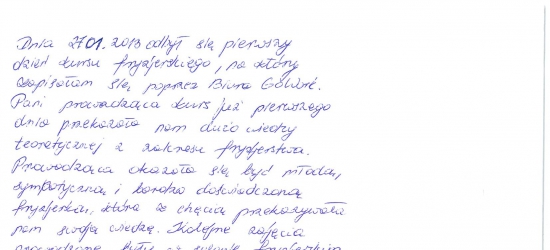 Dnia 27.01.2013 odbył się pierwszy
dzień kursu fryzjerskiego, na który
zapisałam się poprzez Biuro
Pani prowadząca kurs już pierwszego
dnia przekazała nam dużo wiedzy
teoretycznej z zakresu fryzjerstwa.
Prowadząca okazała się być młodą,
sympatyczną i bardzo doświadczoną
fryzjerką, która z chęcią przekazywała
nam swoją wiedzę. Kolejne zajęcia
prowadzone były w